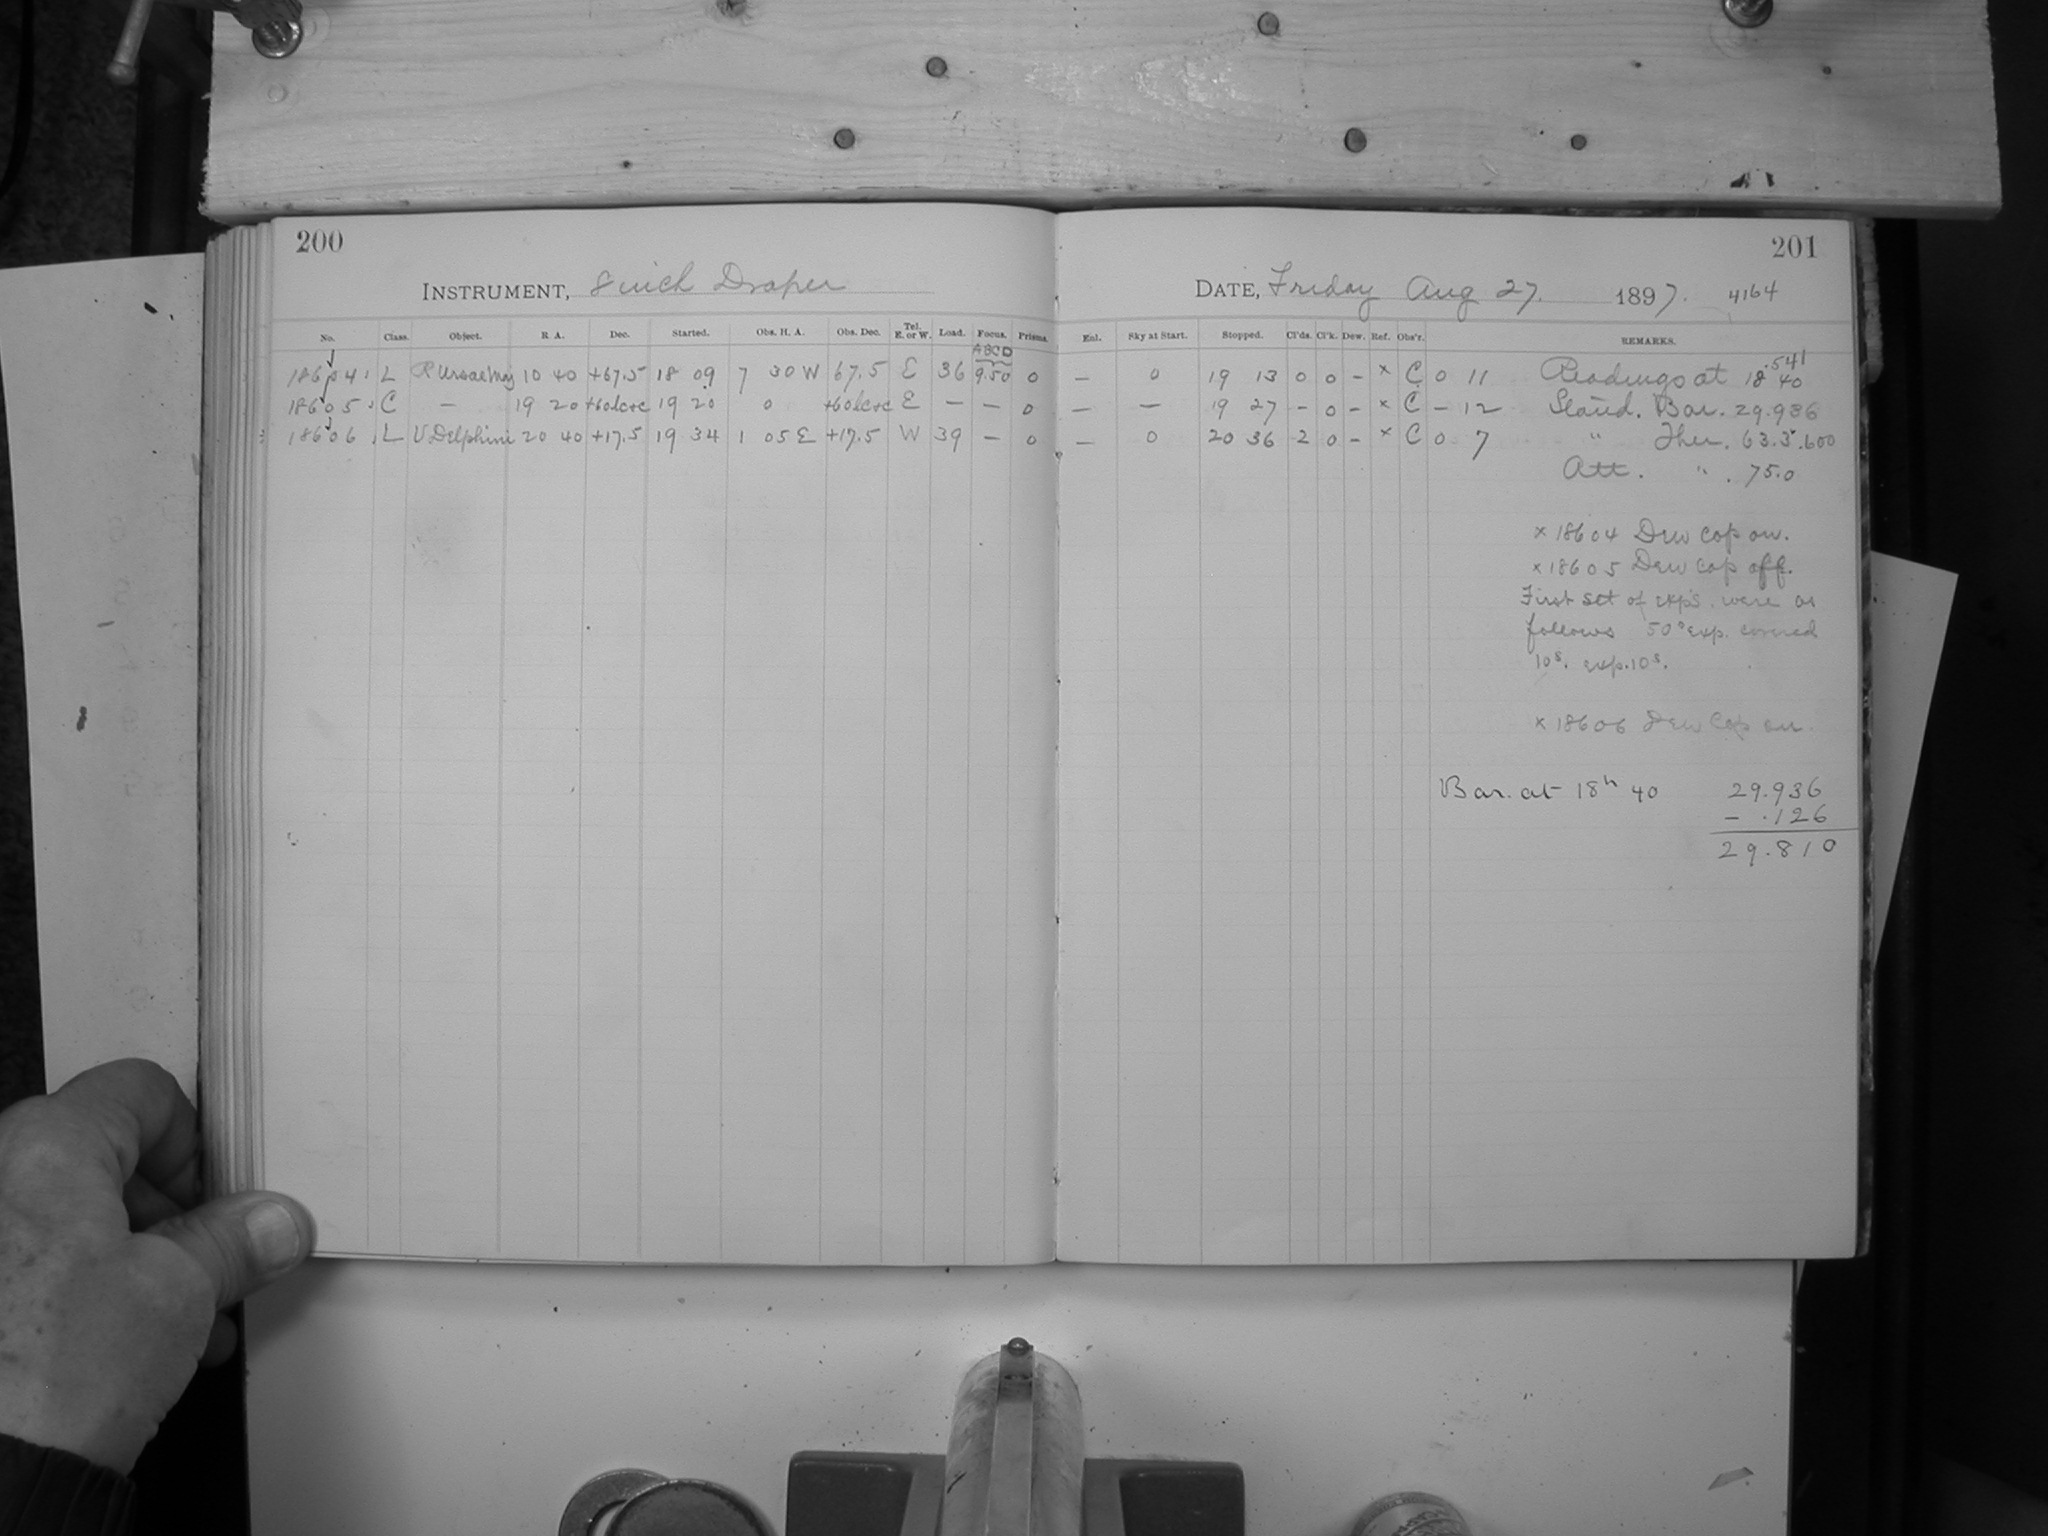 200
INSTRUMENT, 8 inch Draper
No. Class. Object. R. A. Dec. Started. Obs. H. A. Obs. Dec. Tel. E. or W. Load. Focus. Prisms.
ABCD
18604 L R Ursae Maj 10 40 +67.5 18 09 7 30 W 67.5 E 36 9.50 0
18605 C — 19 20 +60 19 20 0 +60 E — — 0
18606 L V Delphini 20 40 +17.5 19 34 1 05 E +17.5 W 39 — 0
201
DATE, Friday Aug 27. 1897. 4164
Enl. Sky at Start. Stopped. Cl'ds. Cl'k. Dew. Ref. Obs'r. REMARKS.
.541
— 0 19 13 0 0 – × C 0 11 Readings at 18 40
— — 19 27 – 0 – × C – 12 Stand. Bar. 29.936
— 0 20 36 2 0 – × C 0 7 " Ther. 63.3 .600
Att. " . 75.0
× 18604 Dew Cap on.
× 18605 Dew Cap off.
First set of exps. were as
follows 50s exp. covered
10s. exp. 10s.
× 18606 Dew Cap on.
Bar. at 18h 40 29.936
– .126
29.810